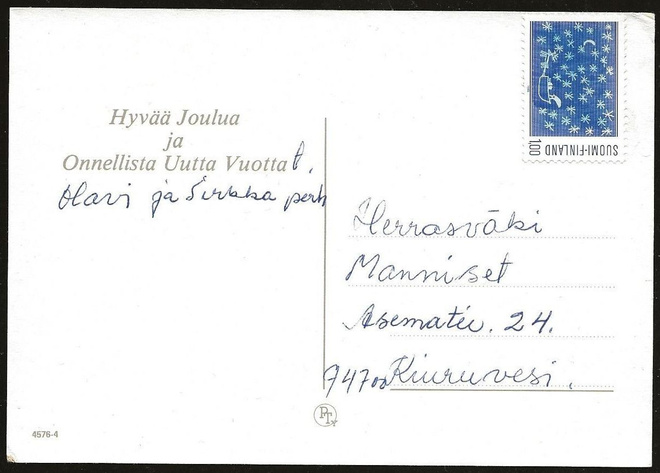 Hyvää Joulua
ja
Onnellista Uutta Vuotta t.
Olavi ja Sirkka perh
SUOMI-FINLAND
1,00
Herrasväki
Manniset
Asematie. 24.
74700 Kiuruvesi.
PTx
4576-4